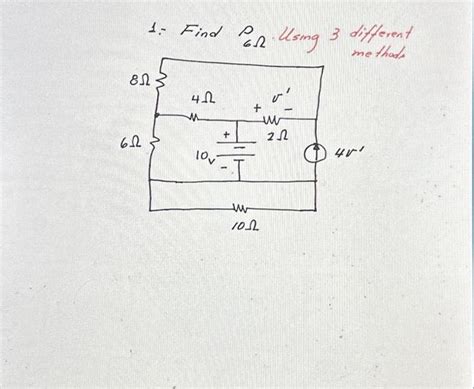 1:- Find P6Ω. Using 3 different methods
8Ω
4Ω
+ v' -
2Ω
6Ω
+
10v
-
4v'
10Ω